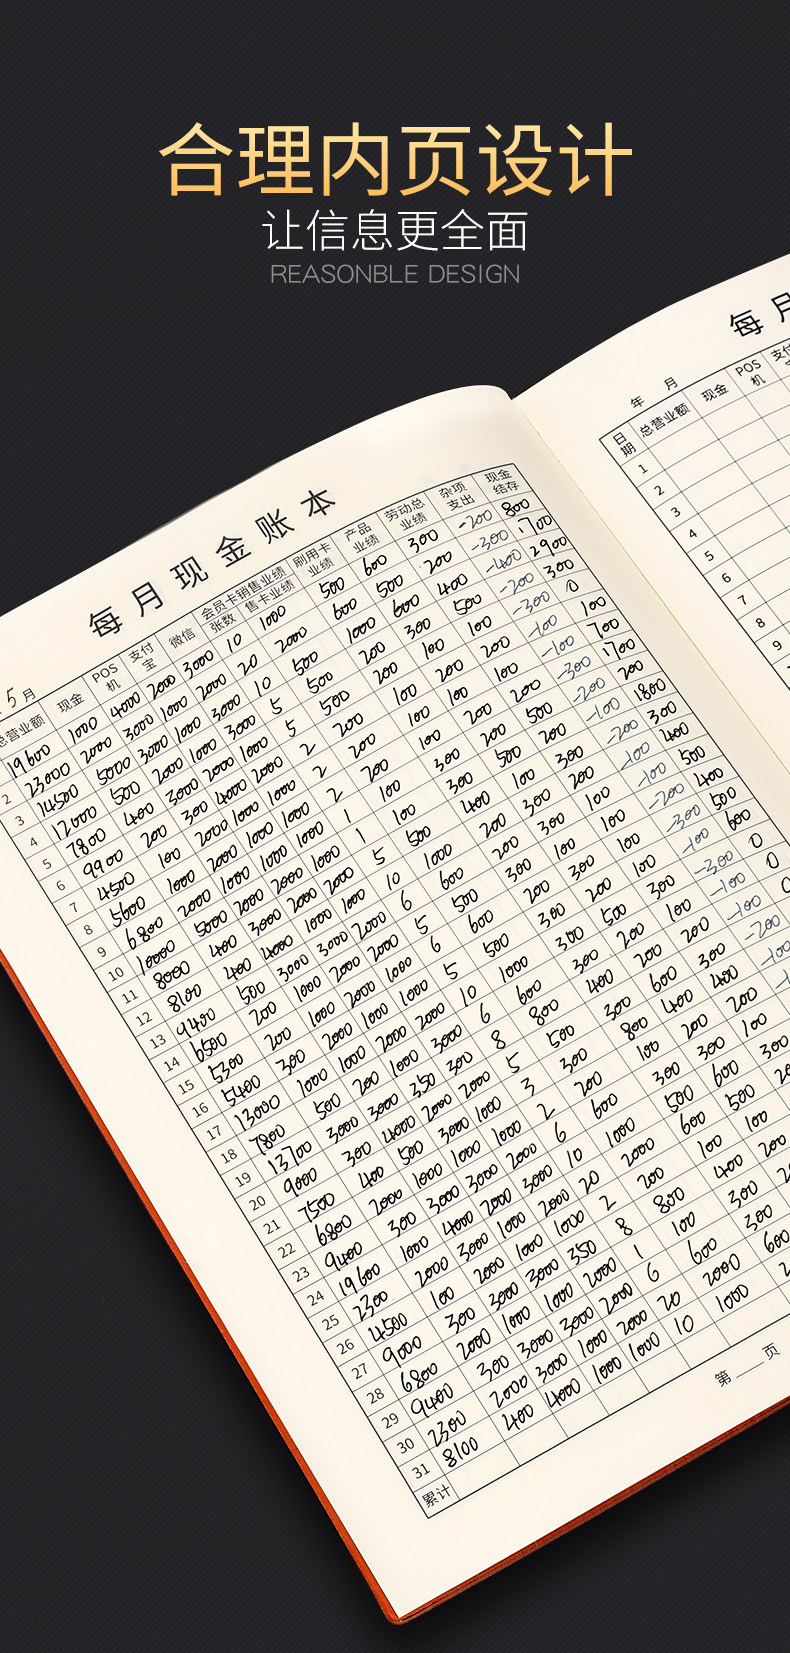 合理内页设计
让信息更全面
REASONBLE DESIGN
每月现金账本
5 月
总营业额 现金 POS机 支付宝 微信 会员卡销售业绩 张数 售卡业绩 刷用卡业绩 产品业绩 劳动总业绩 杂项支出 现金结存
19600 1000 4000 2000 3000 10 1000 500 600 300 -200 800
2 23000 2000 3000 1000 2000 20 2000 600 500 200 -300 1700
3 14500 5000 3000 1000 3000 10 500 1000 600 400 -400 2900
4 12000 500 2000 1000 3000 5 500 200 300 500 -200 300
5 7800 400 3000 2000 1000 5 500 200 100 100 -300 0
6 9900 200 300 4000 2000 2 200 100 200 200 -100 100
7 4500 100 2000 1000 1000 2 200 100 100 100 -100 700
8 5600 1000 2000 1000 1000 2 200 100 200 200 -300 1700
9 6800 2000 1000 1000 1000 1 100 300 200 500 -200 200
10 10000 5000 2000 2000 1000 1 100 300 500 200 -100 1800
11 8000 400 3000 2000 2000 5 500 400 100 300 -200 300
12 8100 400 4000 1000 1000 10 1000 200 300 200 -100 400
13 9400 500 3000 3000 2000 6 600 200 300 100 -100 500
14 6500 200 1000 2000 2000 5 500 300 100 100 -200 400
15 5300 200 1000 2000 1000 6 600 200 300 100 -300 500
16 5400 300 2000 1000 1000 5 500 300 200 100 -100 600
17 13000 1000 1000 2000 2000 10 1000 300 500 300 -300 0
18 7800 500 200 1000 3000 6 600 300 200 100 -100 0
19 13700 3000 3000 350 300 8 800 400 200 200 -100 0
20 9000 300 4000 2000 2000 5 500 300 600 300 -200
21 7500 400 500 3000 1000 3 300 800 400 400
22 6800 2000 1000 1000 1000 2 200 100 200 200
23 9400 300 3000 3000 2000 6 600 300 300 100
24 19600 1000 4000 2000 3000 10 1000 500 600 300
25 2300 2000 3000 1000 2000 20 2000 600 500
26 4500 100 2000 1000 1000 2 200 100 100
27 9000 300 3000 3000 350 8 800 400 200
28 6800 2000 1000 1000 2000 1 100 300
29 9400 300 3000 3000 2000 6 600 300
30 2300 2000 3000 1000 2000 20 2000 600
31 8100 400 4000 1000 1000 10 1000
累计
第 页
每月
年 月
日期 总营业额 现金 POS机
1
2
3
4
5
6
7
8
9